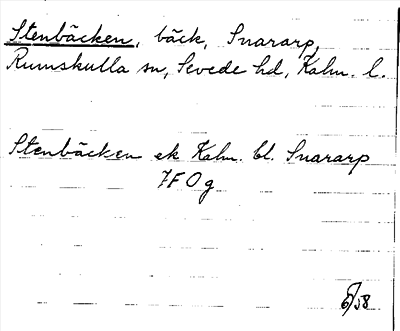 Stenbäcken, bäck, Snararp,
Rumskulla sn, Sevede hd, Kalm. l.
Stenbäcken ek Kalm. bl. Snararp
7F0g
6/58